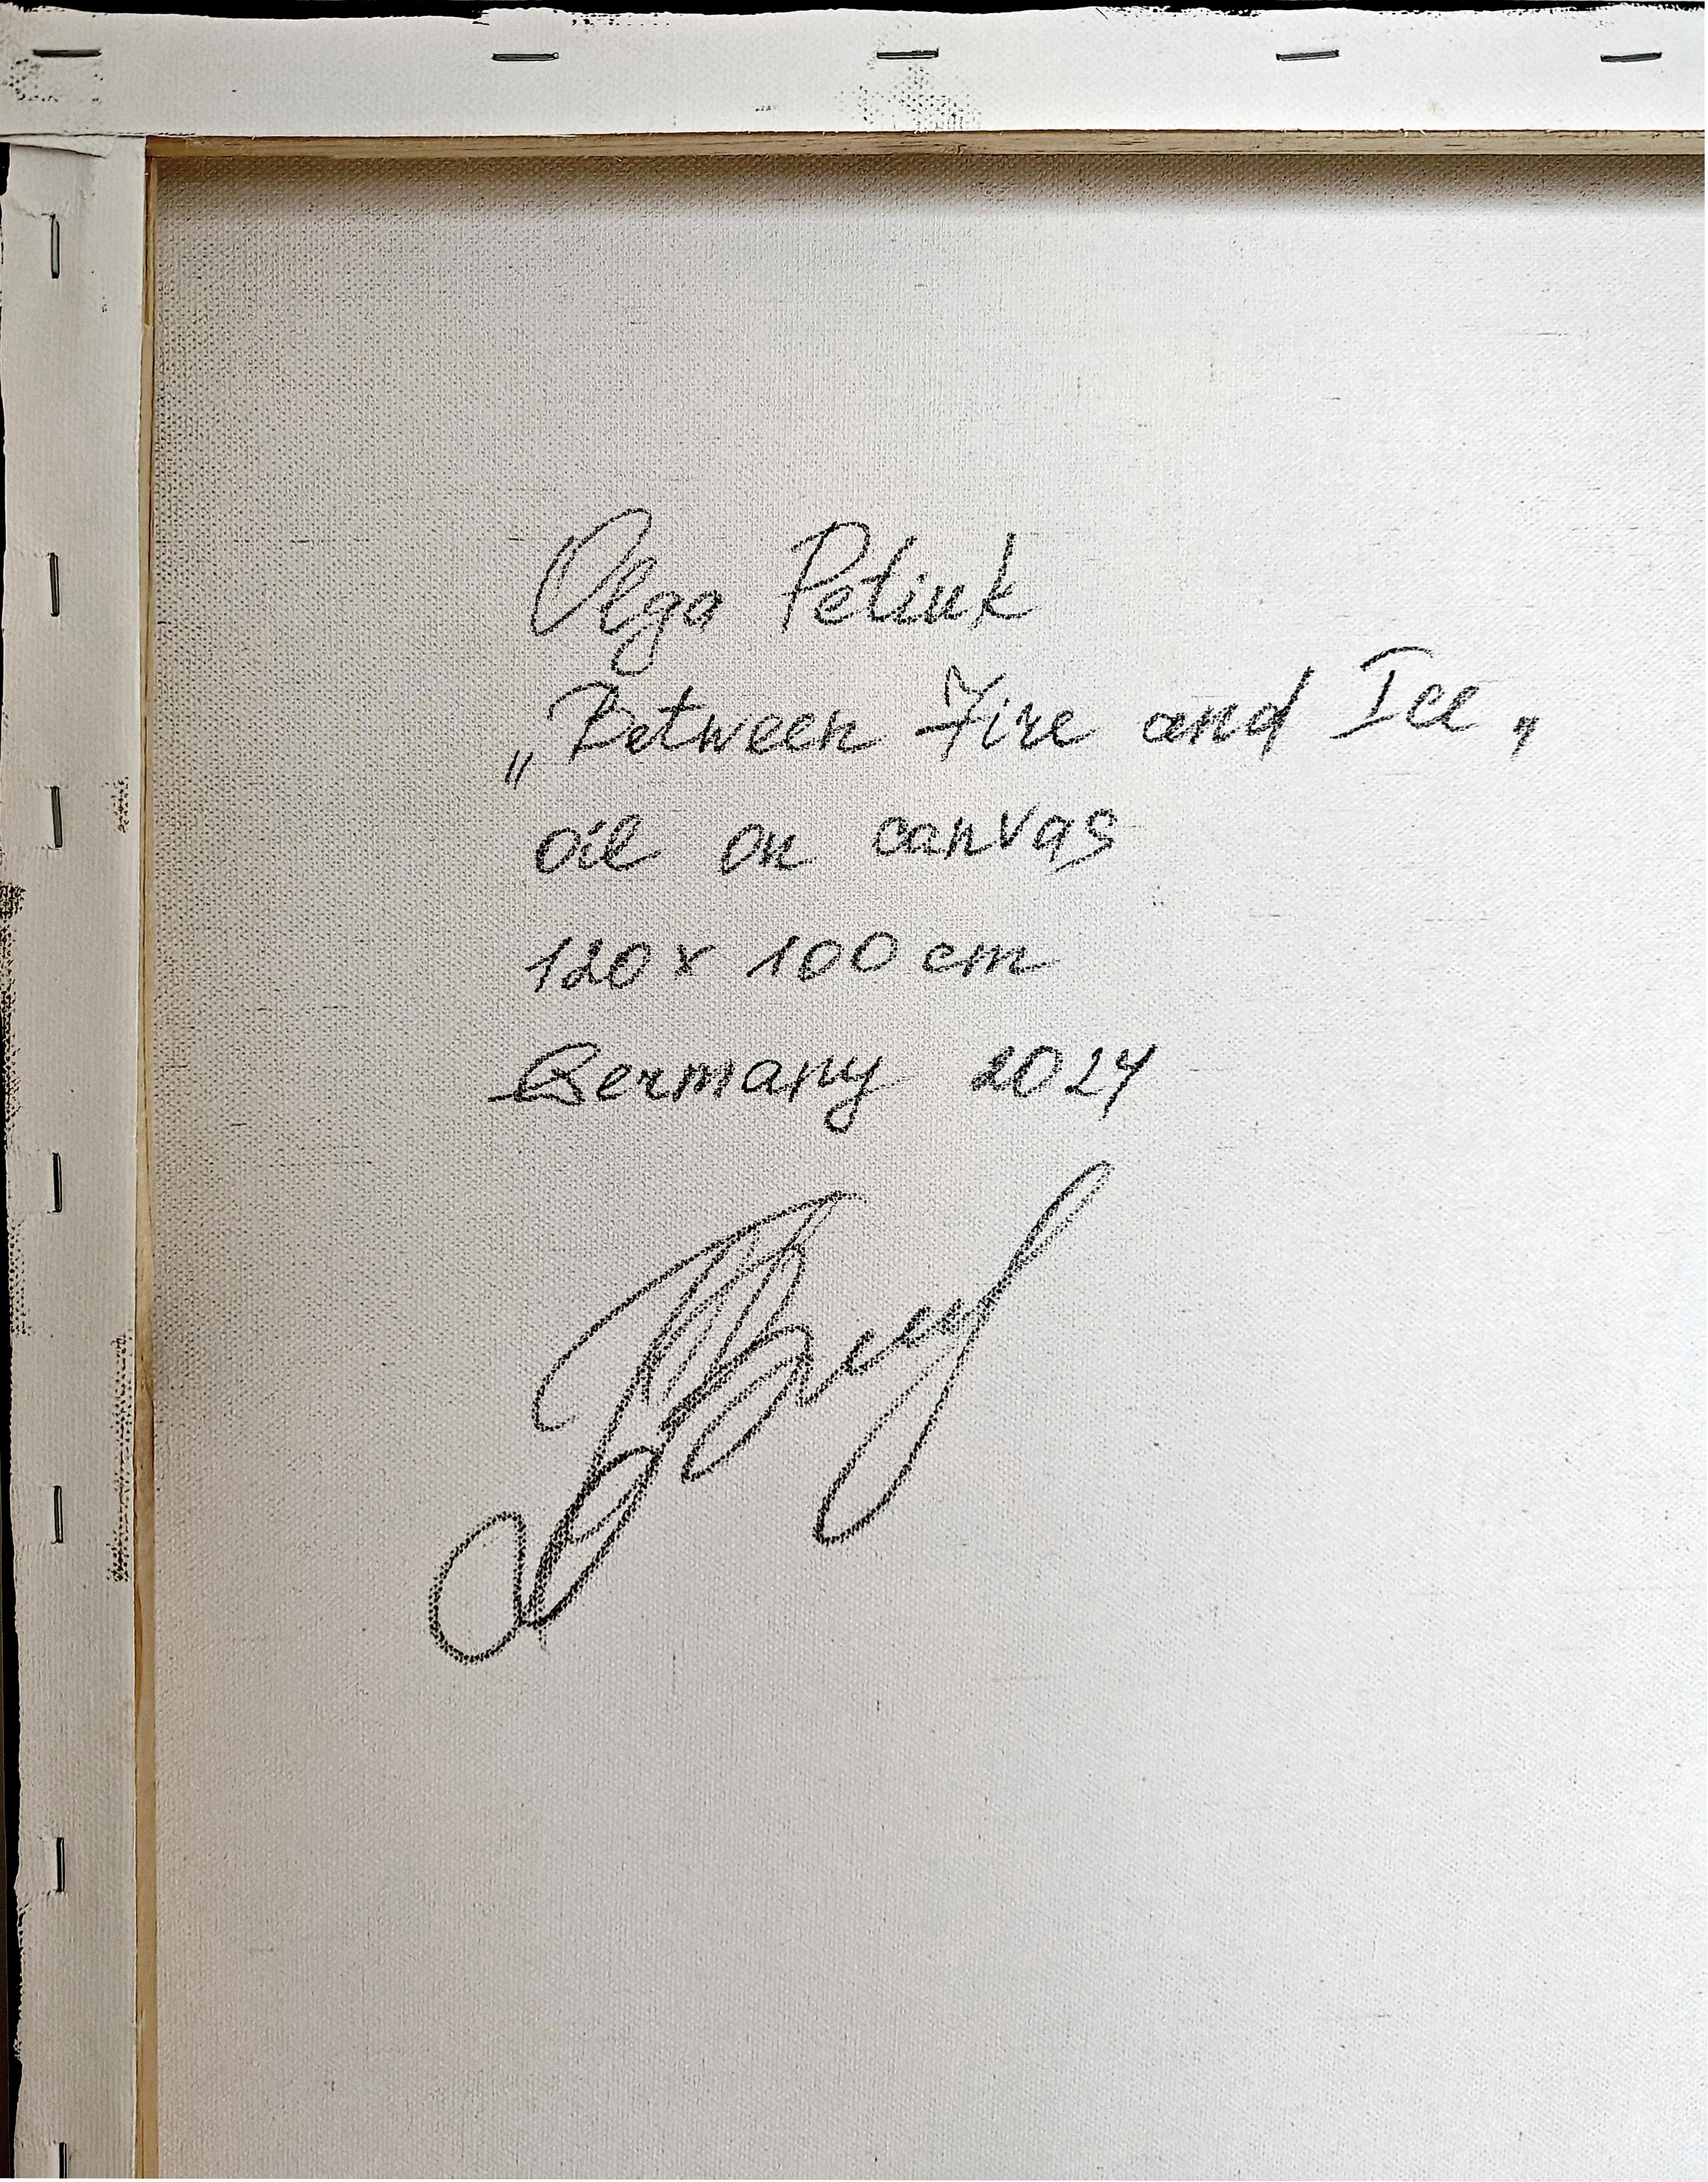 Olga Petiuk
„Between Fire and Ice„
oil on canvas
120 x 100 cm
Germany 2024